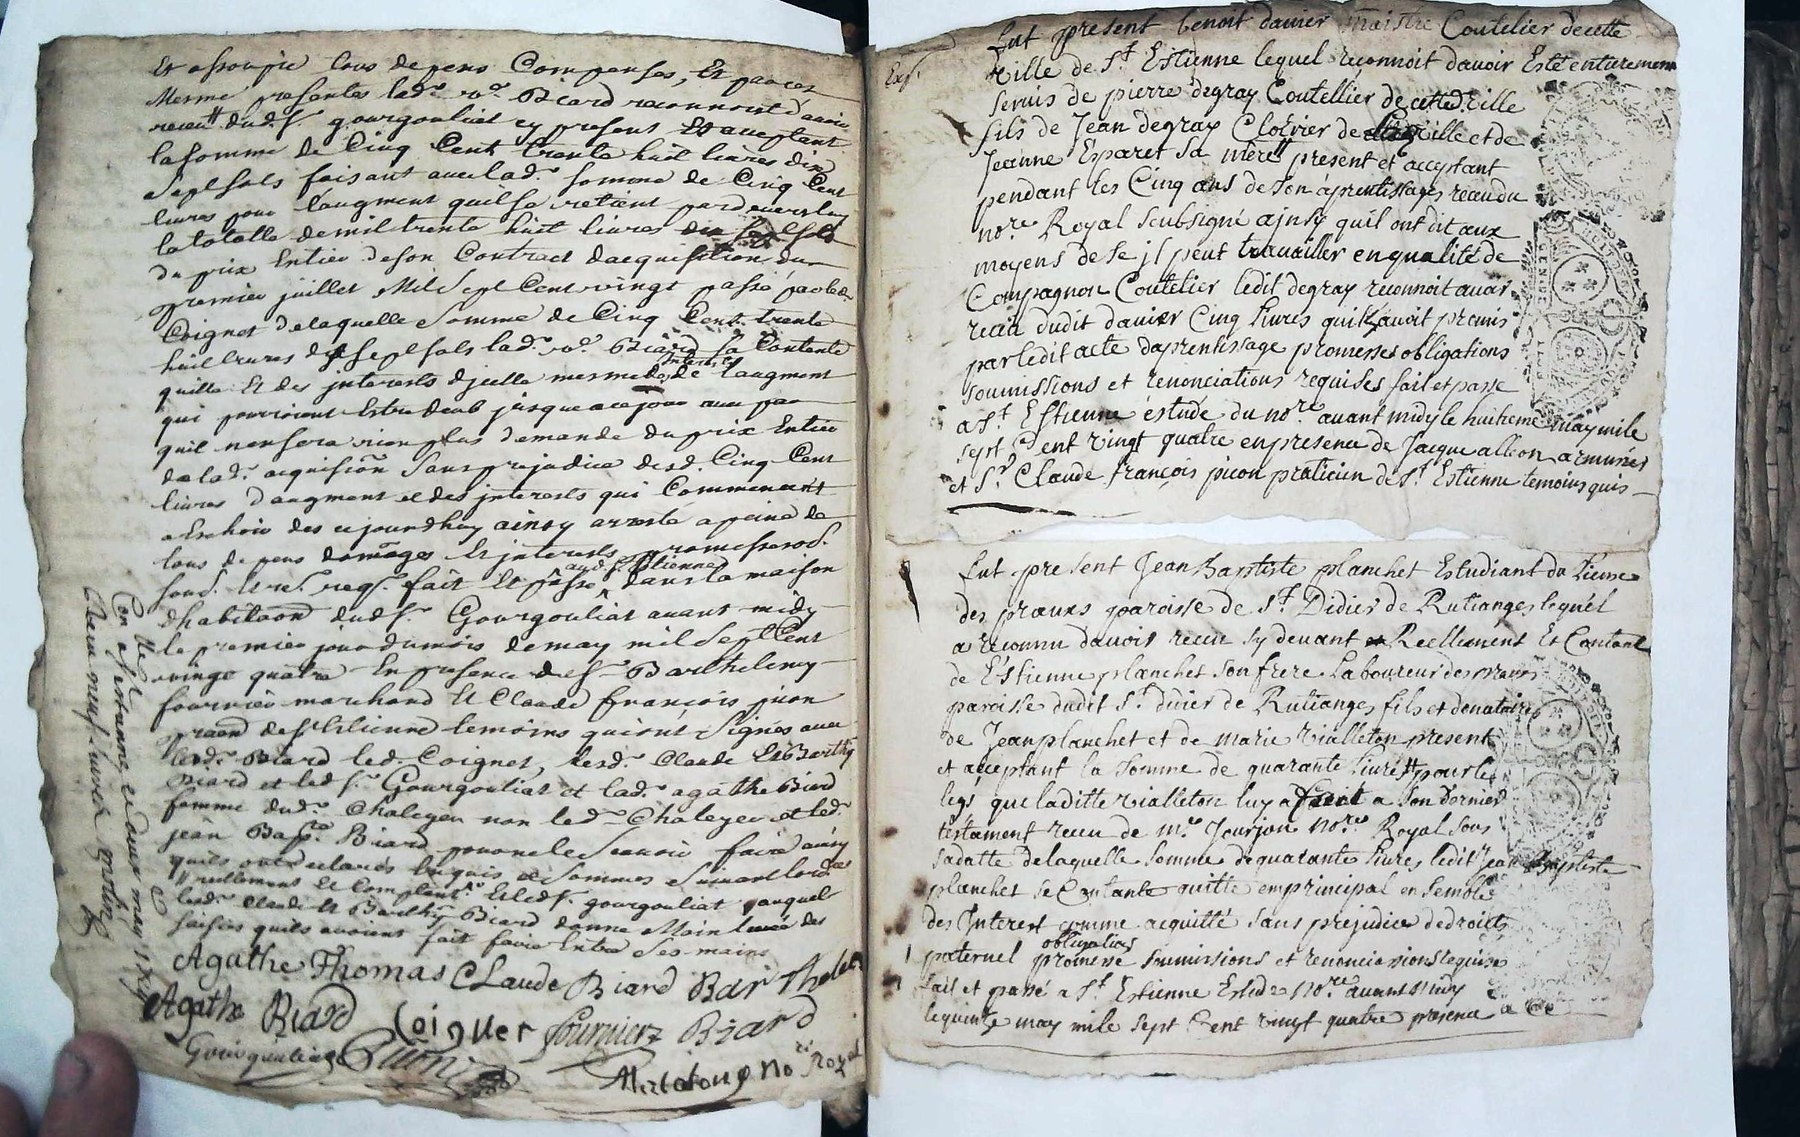 Et assoupie tous depens Compenses, Et par ces
Mesme presentes lad.e v.e Biard reconnoist d'avoir
receu dud. S.r gourgouliat cy present Et acceptant
la somme de Cinq Cent trente huit livres dix
Sept sols faisant avec lad.e somme de Cinq Cent
livres pour l'augment quil se retient pardevers luy
la totalle de mil trente huit livres dix sept sols
du prix Entier de son Contract dacquisition du
premier juillet Mil Sept Cent vingt passé par led.
Coignet de laquelle somme de Cinq Cent trente
huit livres dix sept sols lad.e v.e Biard sa Contente
quitte Et des interests d'jcelle mesme de de l'augment
qui pourroient Estre deub jusque a ce jour avec par
quil nen sera rien plus demandé du prix Entier
de lad.e acquision sans prejudice desd. Cinq Cent
livres d'augment et des jnterests qui Commencent
a Eschoir des cejourdhuy ainsy arresté a peine de
tous depens domages Et jnterests promesses od.
soud. Et re.s req.s fait Et passé aud. S.t Estienne dans la maison
dhabitaon dud. S.r Gourgouliat avant midy
le premier jour du mois de may mil Sept Cent
vingt quatre En presence de S.r Barthelemy
fournier marchand Et Claude françois picon
praticien de S.t Estienne temoins qui ont signés avec
lad.e Biard led. Coignet, lesd. Claude Et Barthy
Biard et led. S.r Gourgouliat et lad.e agathe Biard
femme dud. Chaleyer non led. Chaleyer et led.
jean Bap.te Biard pour ne le scavoir faire ainsy
quils ont declarés Enquis et Sommes suivant lord.
reellement Et Comptant
lesd. claude Et Barthy Biard donne Main levée des
saisies quils avoient fait faire Entre ses mains
Agathe Thomas CLaude Biard Bar thele
Agathe Biard Coignet fournier Biard
Gourgouliat Picon
No.re Royal
Fut present benoit davier maistre Coutelier decette
Exp.
ville de S.t Estienne lequel reconnoit davoir Esté entierement
servis de pierre degray Coutellier de cette ville
fils de Jean degray Cloutier de ville et de
Jeanne Esparet sa mère present et acceptant
pendant les Cinq ans de son aprentissages receu du
no.re Royal soubsigné ajnsy quil ont dit aux
moyens de se jl peut travailler en qualité de
Compagnon Coutelier ledit degray reconnoit avoir
receu dudit davier Cinq livres quil avoit promis
par ledit acte daprentissage promesses obligations
soumissions et renonciations requises fait et passé
a S.t Estienne éstude du no.re avant midy le huitieme may mile
sept Cent vingt quatre en presence de Jacque alleon armurier
et S.r Claude françois picon praticien de S.t Estienne temoins quis
Fut present Jean Baptiste planchet Estudiant du lieu
des praux paroisse de S.t Didier de Rutianges lequel
a reconnu davoir receu sy devant Reellement Et Contant
de Estienne planchet son frere Laboureur des praux
paroisse dudit S.t didier de Rutianges fils et donataire
de Jean planchet et de marie vialleton present
et acceptant la somme de quarante livres pour le
legs que laditte vialleton luy a fait a son dernier
testament receu de m.e Jourjon no.re Royal sous
sadatte de laquelle somme de quarante livres ledit Jean Baptiste
planchet se Contante quitte emprincipal en semble
des Jnterest comme acquitté sans prejudice de droits
paternel promesse obligation soumissions et renonciassions requise
fait et passé a S.t Estienne Estude no.re avant midy
le quinze may mile sept Cent vingt quatre presence a Ce